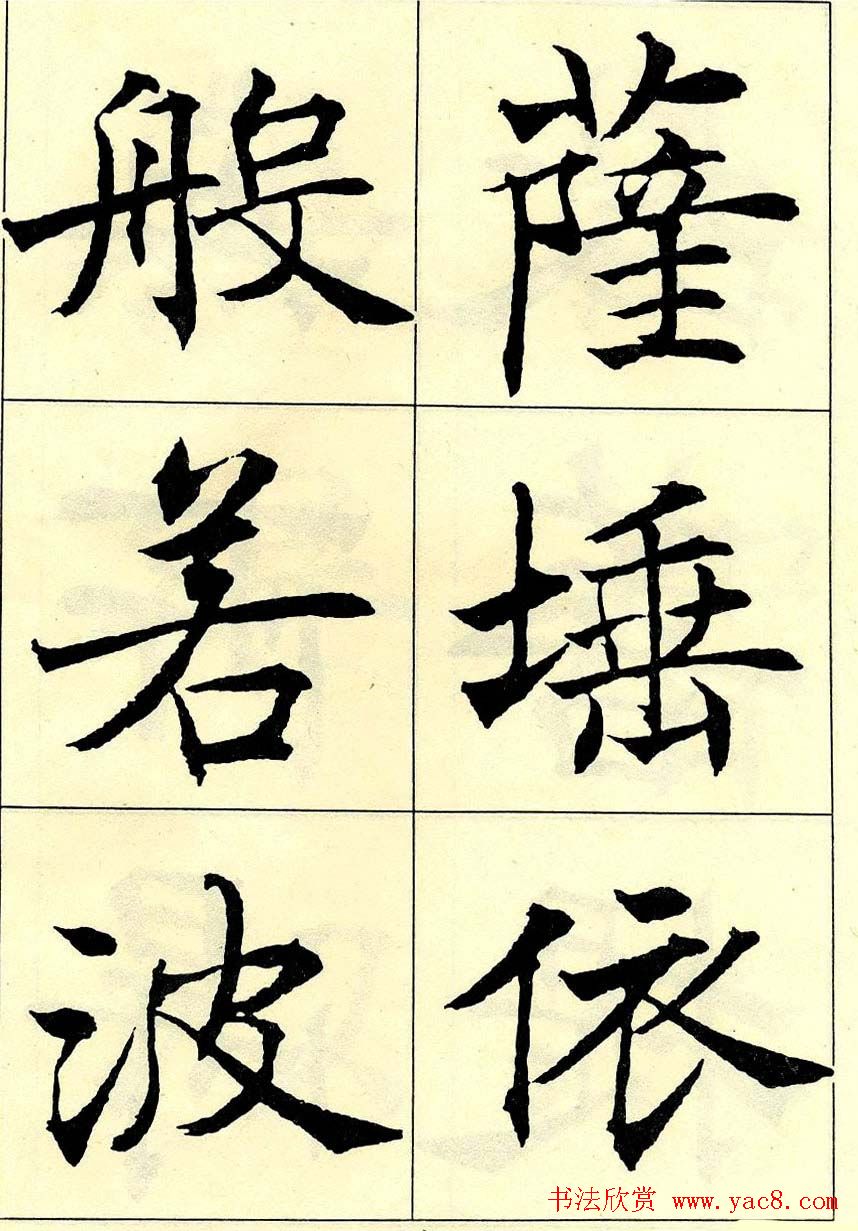 薩埵依
般若波
书法欣赏 www.yac8.com